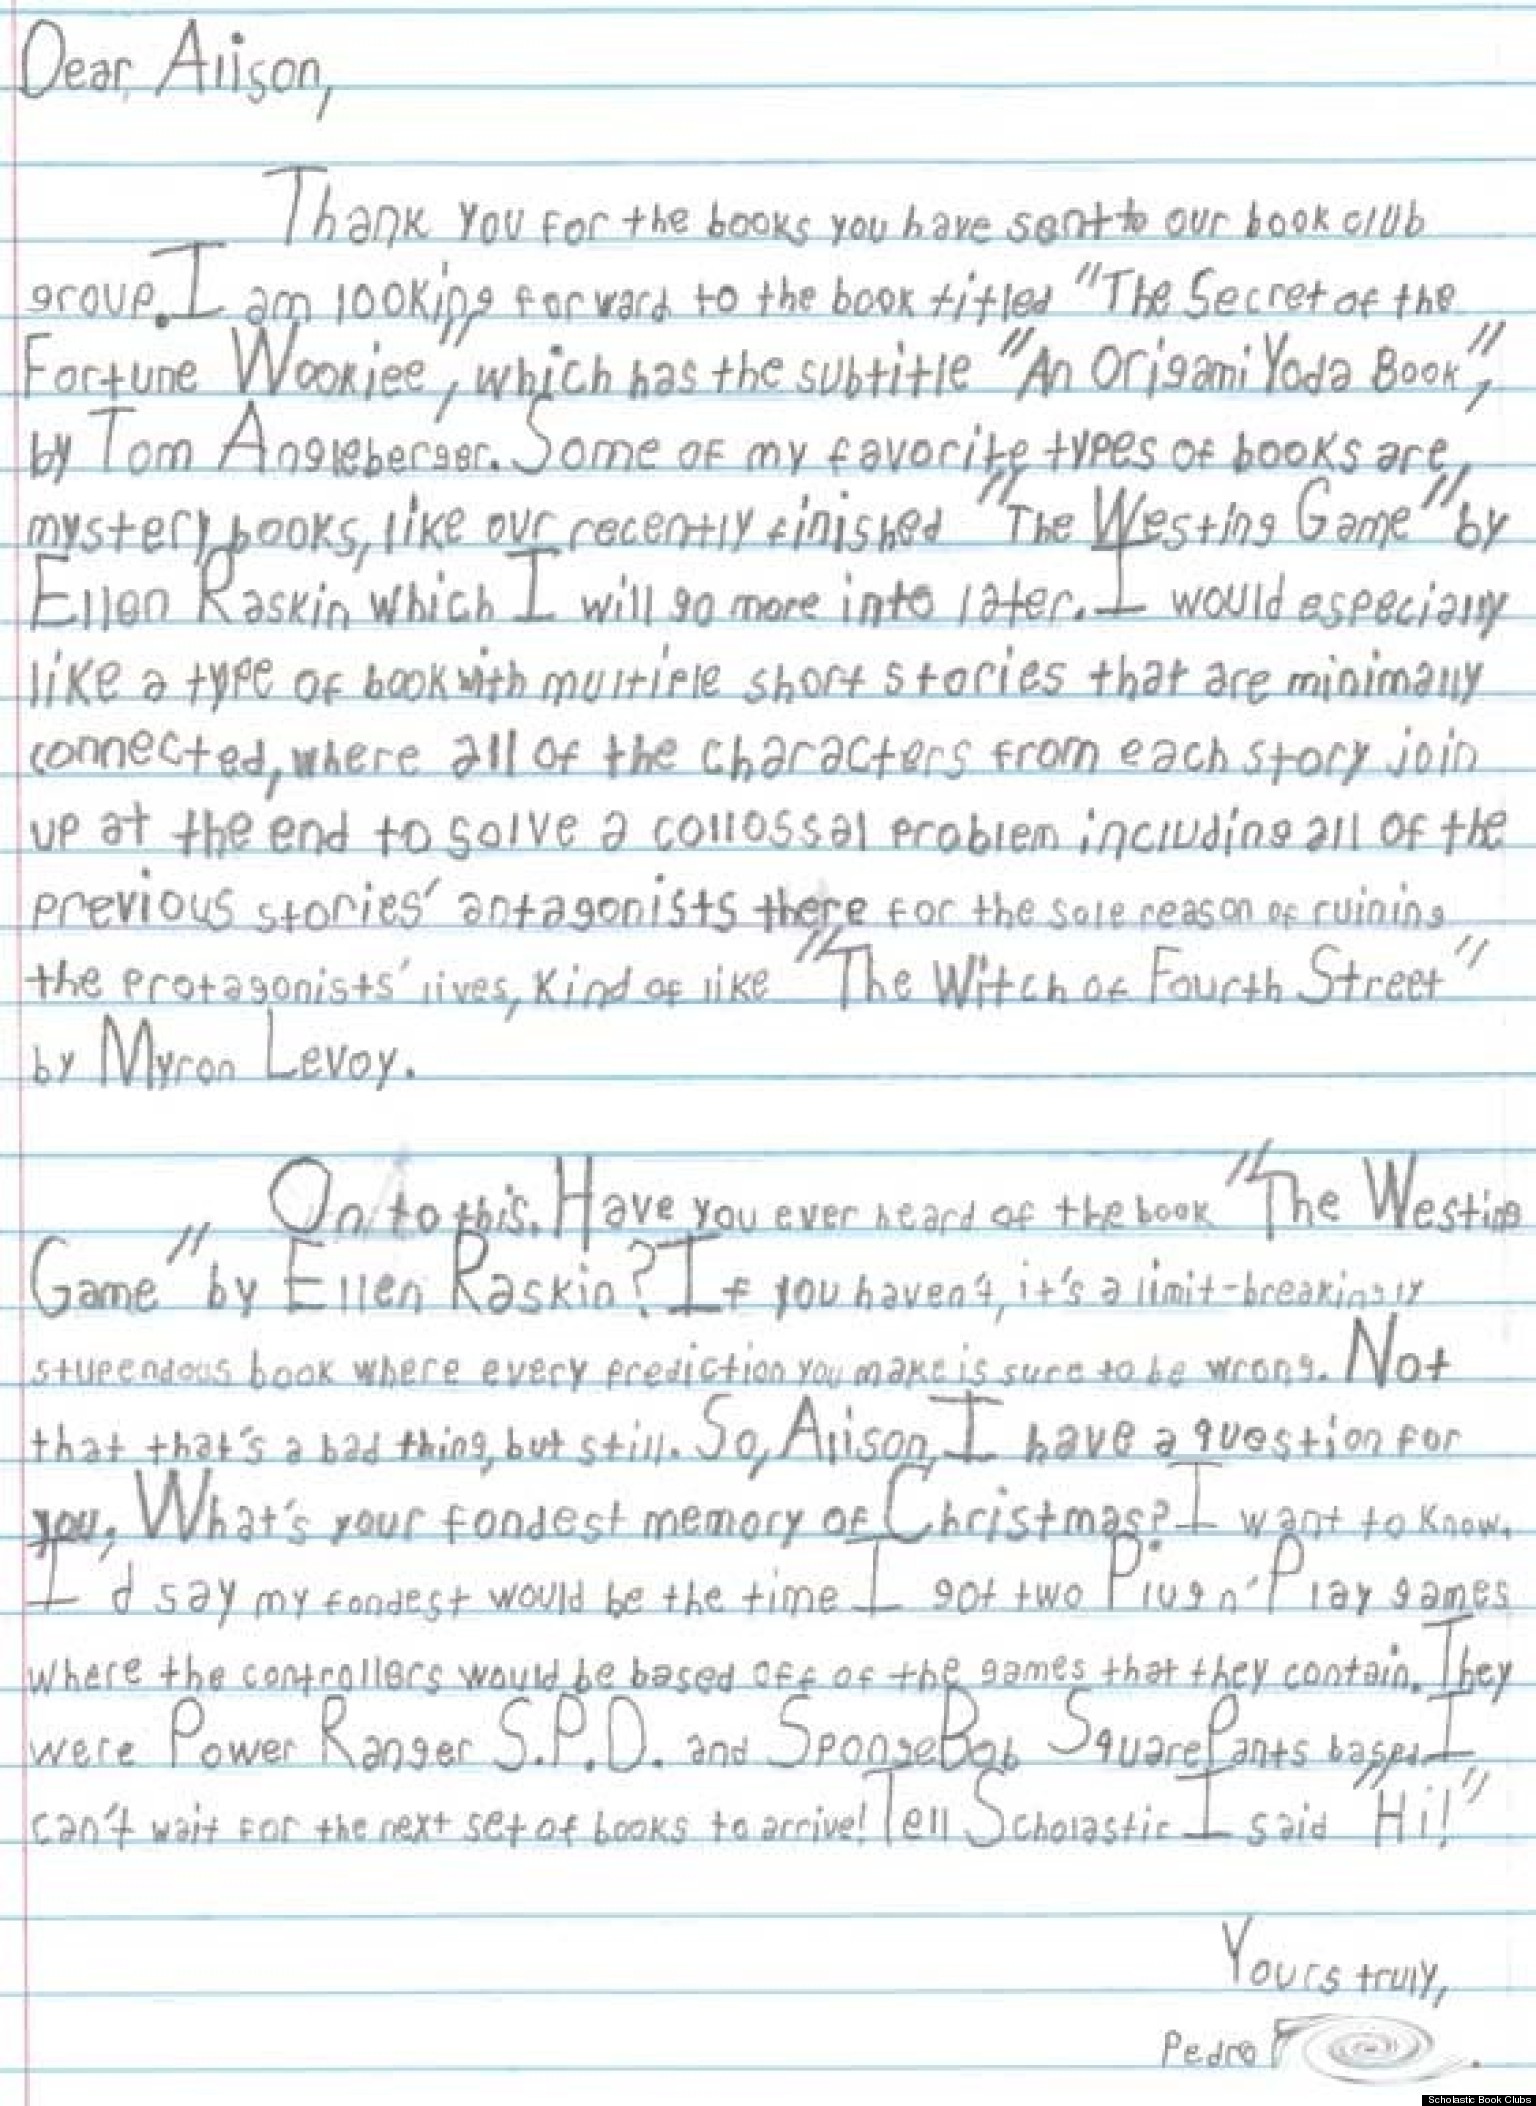 Dear, Alison,
Thank you for the books you have sent to our book club
group. I am looking forward to the book titled "The Secret of the
Fortune Wookiee", which has the subtitle "An Origami Yoda Book",
by Tom Angleberger. Some of my favorite types of books are
mystery books, like our recently finished "The Westing Game" by
Ellen Raskin which I will go more into later. I would especially
like a type of book with multiple short stories that are minimally
connected, where all of the characters from each story join
up at the end to solve a collossal problem including all of the
previous stories' antagonists there for the sole reason of ruining
the protagonists' lives, kind of like "The Witch of Fourth Street"
by Myron Levoy.
On to this. Have you ever heard of the book "The Westing
Game" by Ellen Raskin? If you haven't, it's a limit-breakingly
stupendous book where every prediction you make is sure to be wrong. Not
that that's a bad thing, but still. So, Alison, I have a question for
you, What's your fondest memory of Christmas? I want to know.
I'd say my fondest would be the time I got two Plug n' Play games
where the controllers would be based off of the games that they contain. They
were Power Ranger S.P.D. and SpongeBob SquarePants based. I
can't wait for the next set of books to arrive! Tell Scholastic I said "Hi!"
Yours truly,
Pedro F
Scholastic Book Clubs